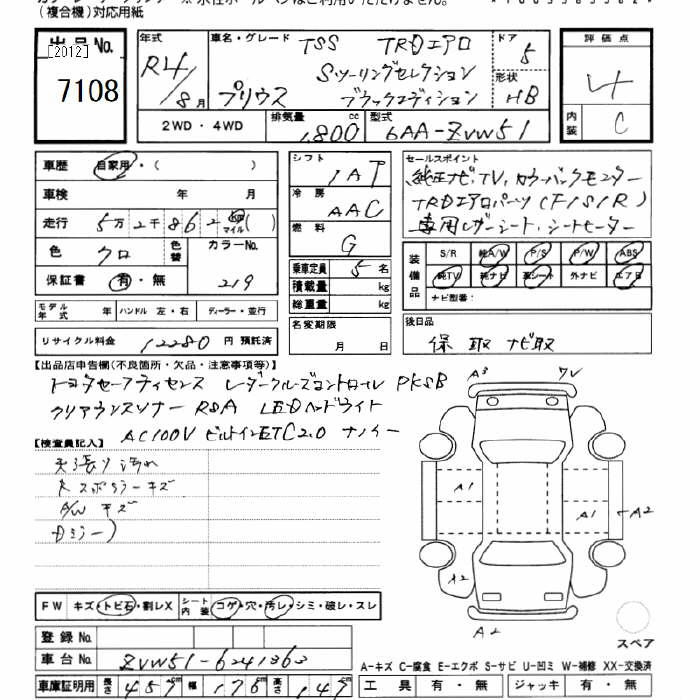 (複合機)対応用紙
出品No.
[2012]
7108
年式 車名・グレード TSS TRDエアロ ドア 5
R4/8月 プリウス Sツーリングセレクション
ブラックエディション 形状 HB
評価点 4
内装 C
2WD・4WD 排気量 1,800 cc 型式 6AA-ZVW51
車歴 自家用・( )
車検 年 月
走行 5万2千862 マイル( )
色 クロ 色替 カラーNo. 219
保証書 有・無
シフト 1AT
冷房 AAC
燃料 G
乗車定員 5名
積載量 kg
総重量 kg
セールスポイント
純正ナビ,TV,カラーバックモニター
TRDエアロパーツ(F/S/R)
専用レザーシート,シートヒーター
装備品 S/R 純A/W P/S P/W ABS
純TV 純ナビ 革シート 外ナビ エアB
ナビ型番:
モデル年式 年 ハンドル 左・右 ディーラー・並行
名変期限 月 日
後日品
保 取 ナビ取
リサイクル料金 12280 円 預託済
【出品店申告欄(不良箇所・欠品・注意事項等)】
トヨタセーフティセンス レーダークルーズコントロール PKSB
クリアランスソナー RSA LEDヘッドライト
AC100V ビルトインETC2.0 ナノイー
【検査員記入】
天張り汚れ
A/W キズ
A3
A1
A1
A2
A2
A2
スペア
FW キズ・トビ石・割レX シート内装 コゲ・穴・汚レ・シミ・破レ・スレ
登録No.
車台No. ZVW51-6241363
車庫証明用 長さ 457 cm 幅 176 cm 高さ 147 cm
A-キズ C-腐食 E-エクボ S-サビ U-凹ミ W-補修 XX-交換済
工具 有・無 ジャッキ 有・無